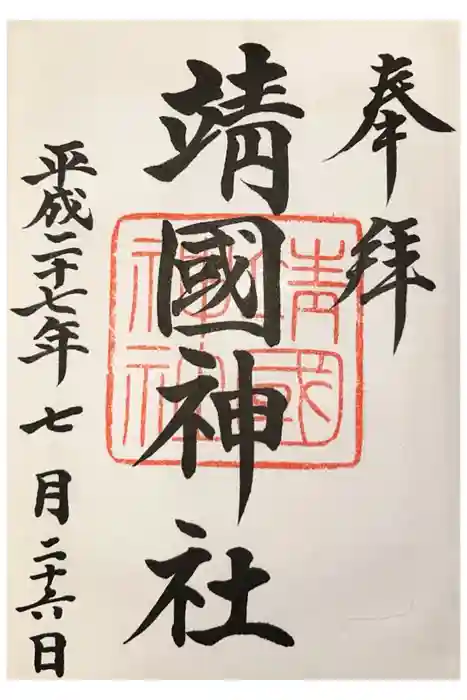 奉拝
靖國神社
平成二十七年七月二十六日
靖国
神社